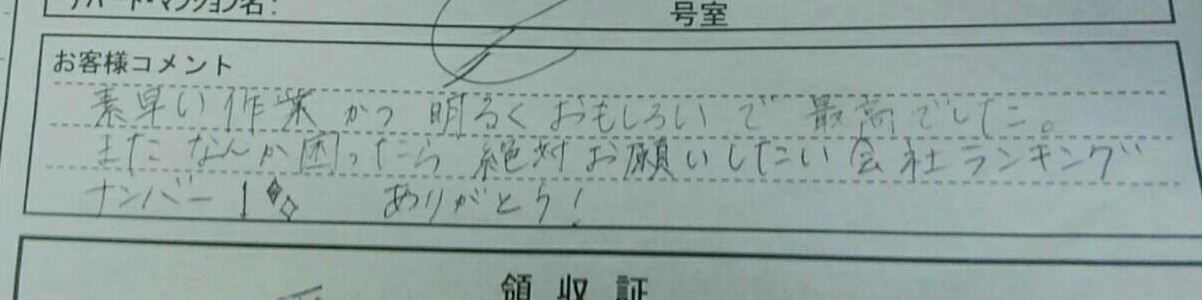 アパート・マンション名: 号室
お客様コメント
素早い作業かつ明るくおもしろいで最高でした。
またなんか困ったら絶対お願いしたい会社ランキング
ナンバー1 ありがとう!
領収証